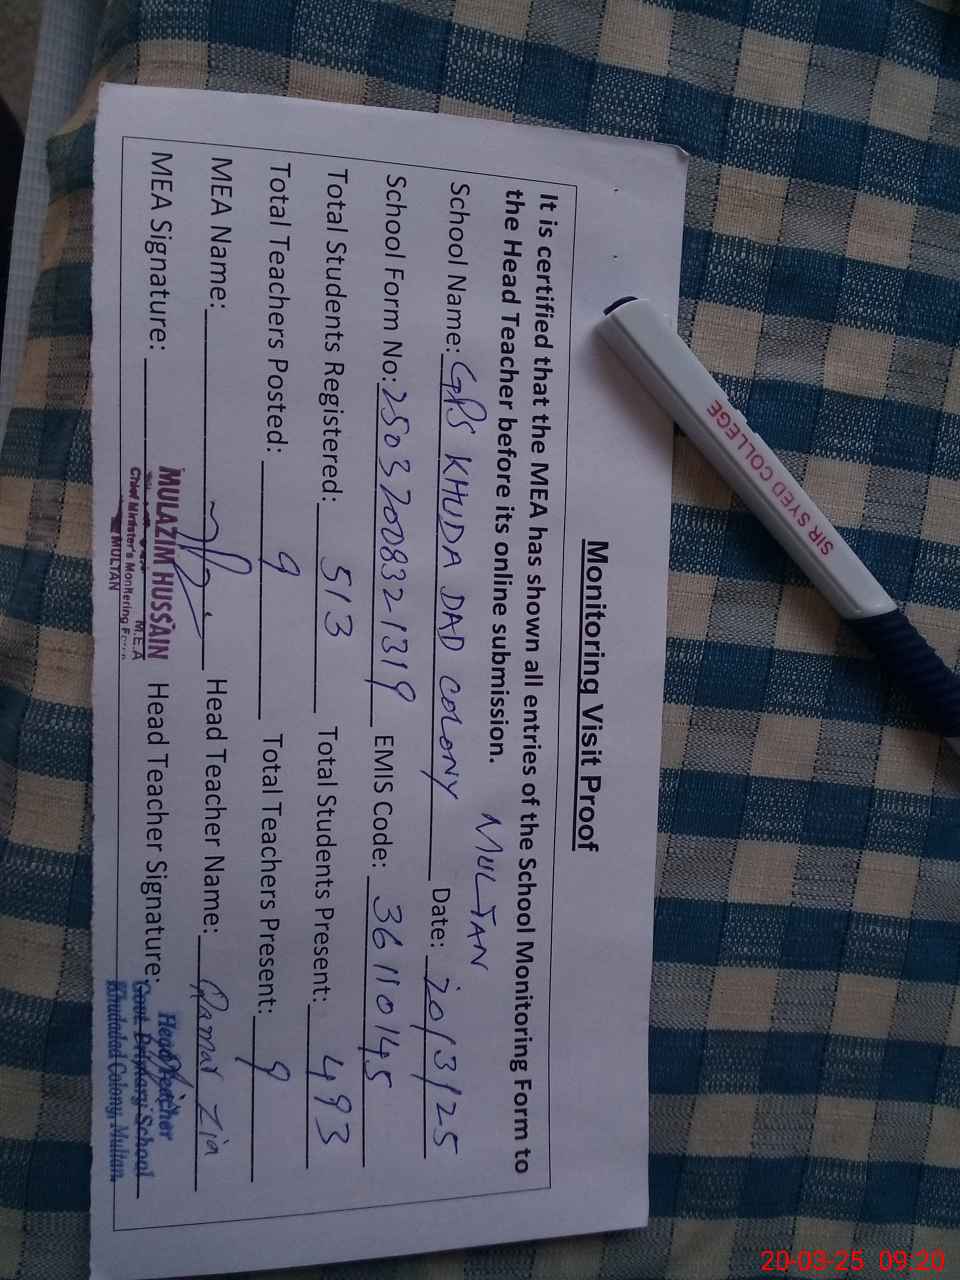 Monitoring Visit Proof
It is certified that the MEA has shown all entries of the School Monitoring Form to
the Head Teacher before its online submission.
MULTAN
School Name: GPS KHUDA DAD COLONY Date: 20/3/25
School Form No: 25032008321319 EMIS Code: 36110145
Total Students Registered: 513 Total Students Present: 493
Total Teachers Posted: 9 Total Teachers Present: 9
MEA Name: Head Teacher Name: Qamar Zia
MEA Signature: Head Teacher Signature:
MULAZIM HUSSAIN
M.E.A
Chief Minister's Monitoring
MULTAN
Head Teacher
Govt. Primary School
Khudadad Colony, Multan
SIR SYED COLLEGE
20-03-25 09:20